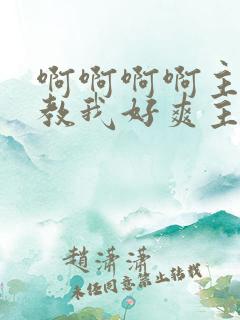 啊啊啊啊主
教我好爽主
趙潇潇
未经同意禁止转载